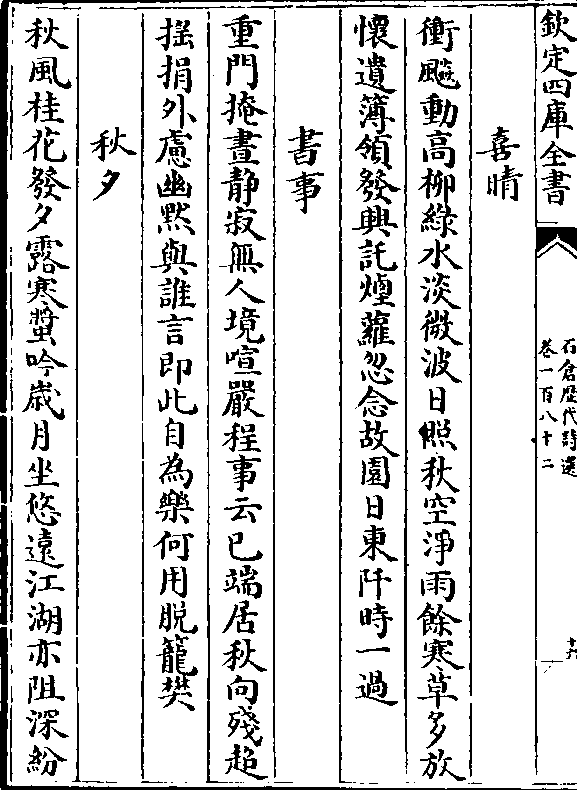 欽定四庫全書
石倉歴代詩選
卷一百八十二
十六
喜晴
衝飈動高柳綠水淡微波日照秋空淨雨餘寒草多放
懷遺簿領發興託煙蘿忽念故園日東阡時一過
書事
重門掩晝静寂無人境喧嚴程事云已端居秋向殘超
揺捐外慮幽黙與誰言即此自為樂何用脱籠樊
秋夕
秋風桂花發夕露寒螿吟歳月坐悠遠江湖亦阻深紛